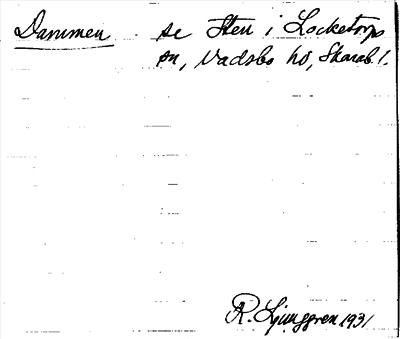 Dammen se Sten i Locketorps
sn, Vadsbo hd, Skarab. l.
R. Ljunggren 1931